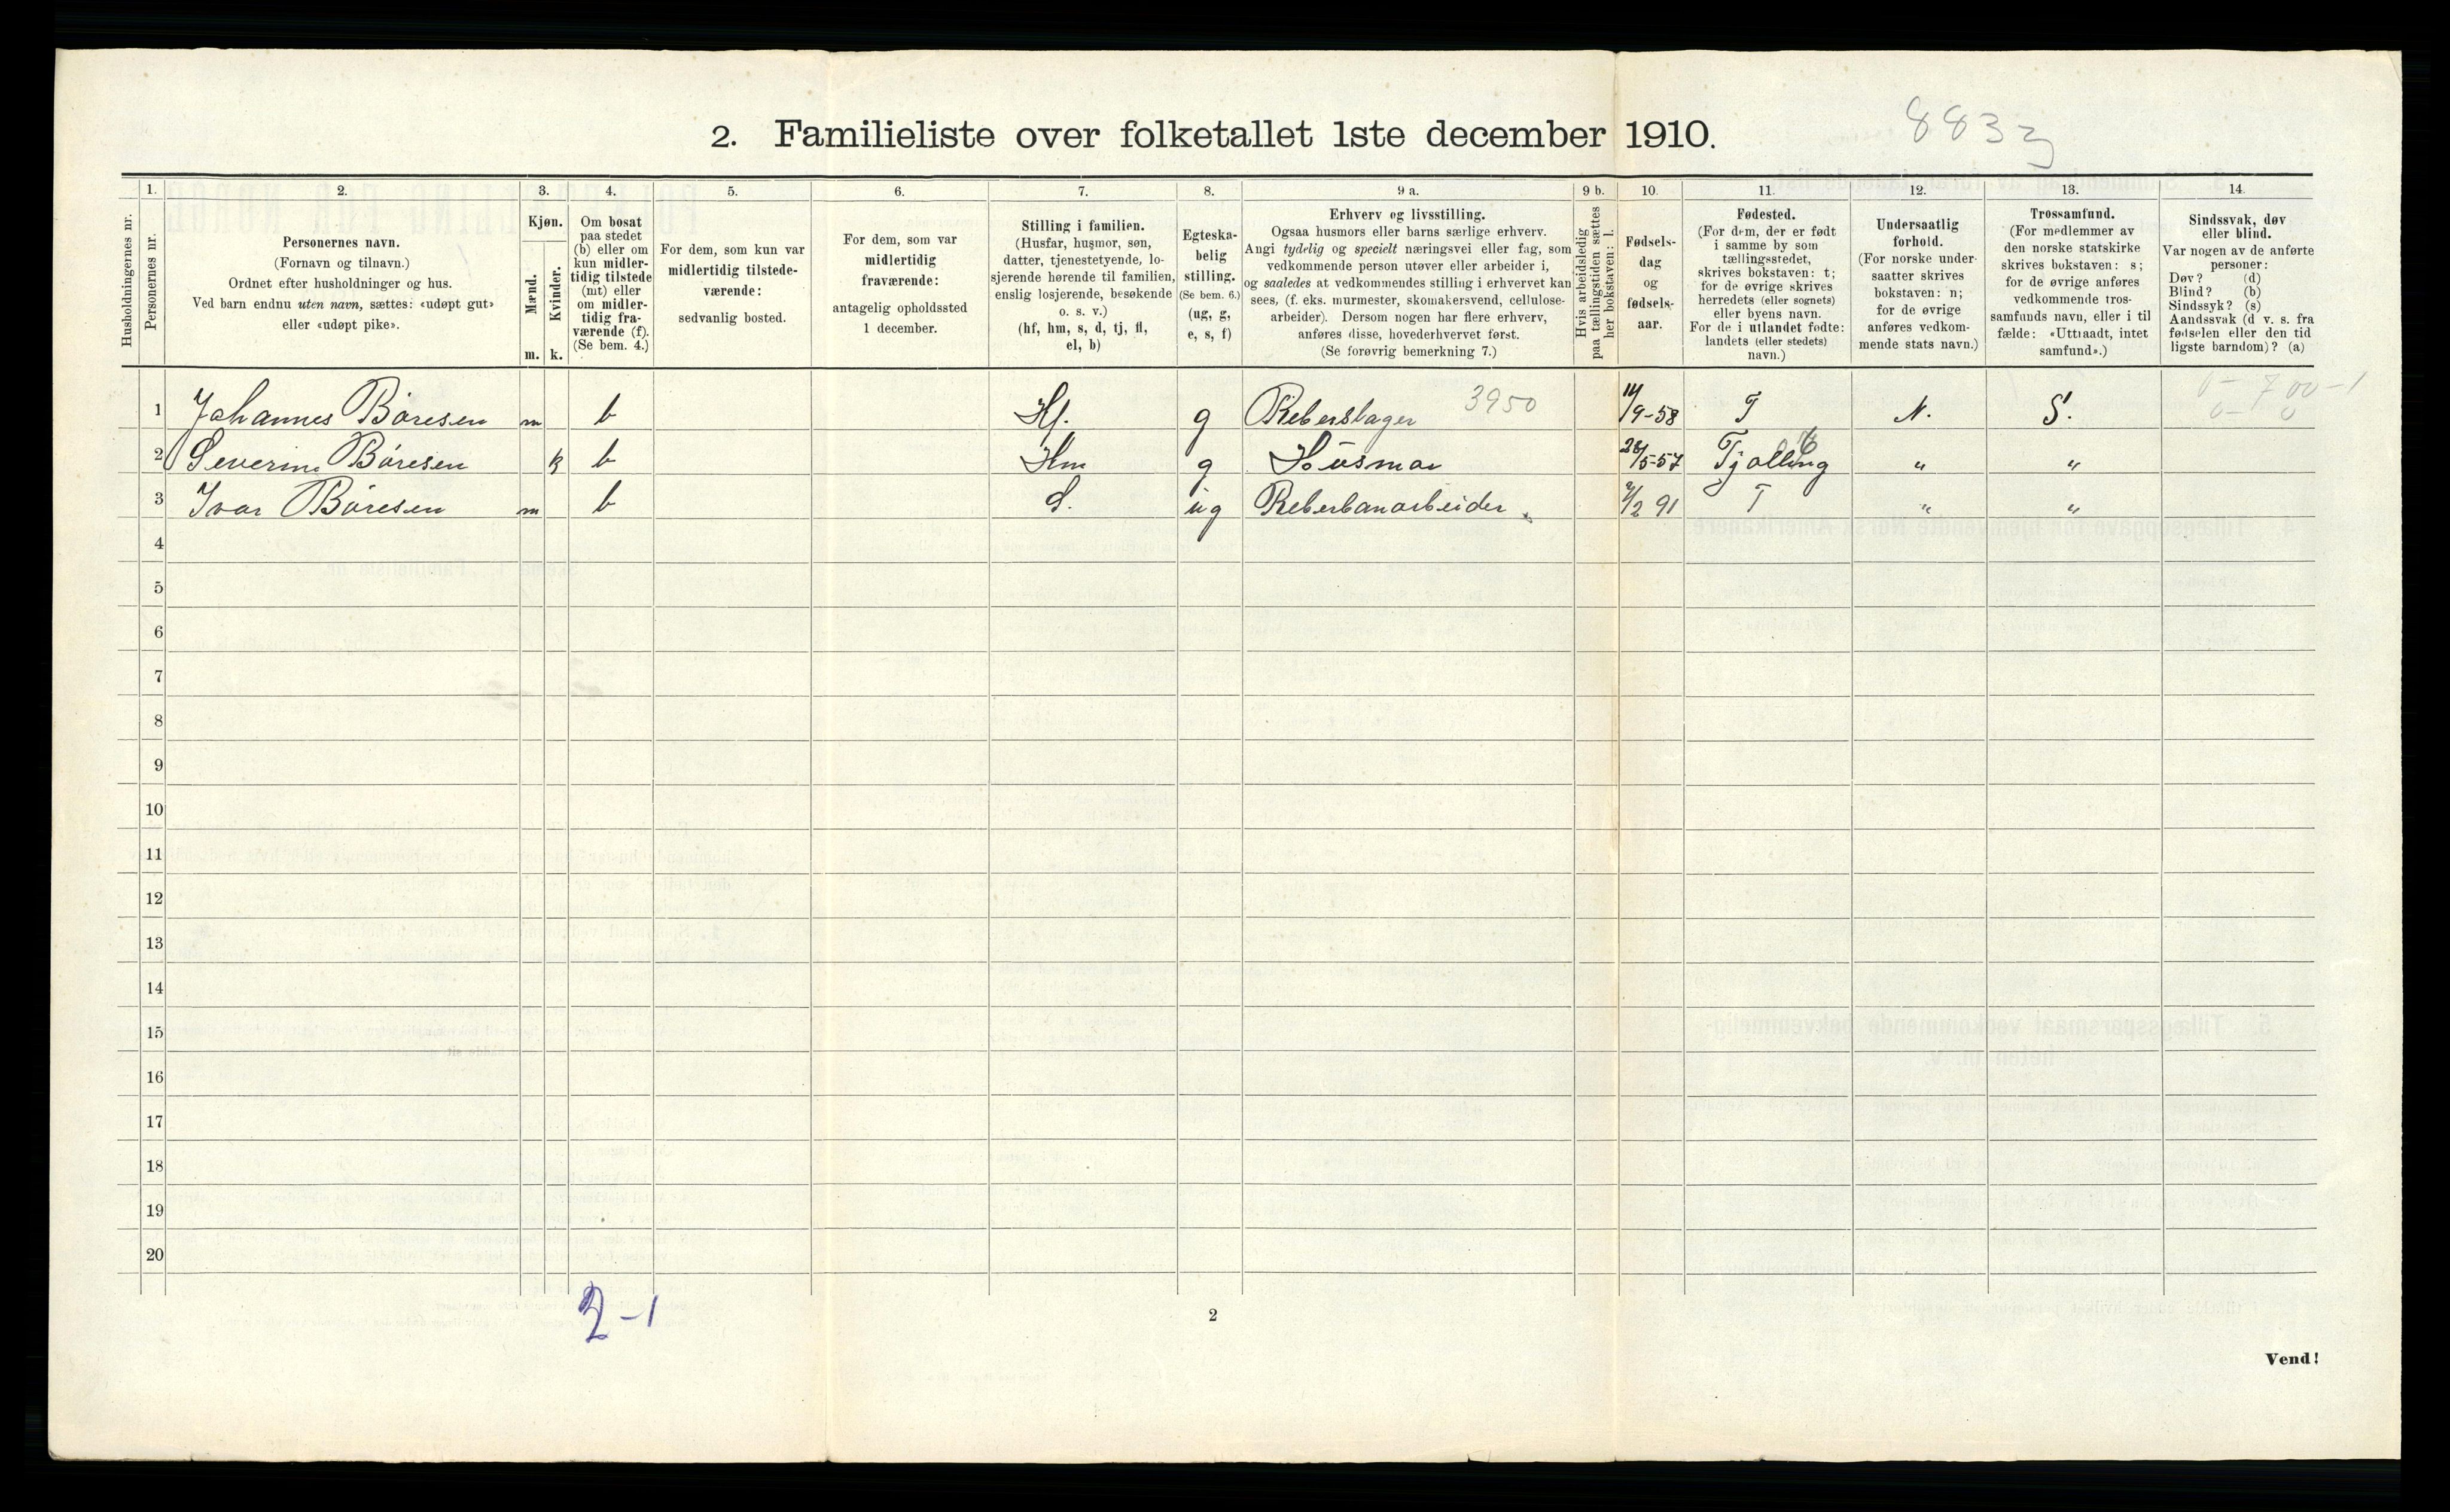 2. Familieliste over folketallet 1ste december 1910.
8833
Husholdningernes nr.
1.
Personernes nr.
2.
Personernes navn.
(Fornavn og tilnavn.)
Ordnet efter husholdninger og hus.
Ved barn endnu uten navn, sættes: «udøpt gut»
eller «udøpt pike».
3.
Kjøn.
Mænd.
Kvinder.
m. k.
4.
Om bosat
paa stedet
(b) eller om
kun midler-
tidig tilstede
(mt) eller
om midler-
tidig fra-
værende (f).
(Se bem. 4.)
5.
For dem, som kun var
midlertidig tilstede-
værende:
sedvanlig bosted.
6.
For dem, som var
midlertidig
fraværende:
antagelig opholdssted
1 december.
7.
Stilling i familien.
(Husfar, husmor, søn,
datter, tjenestetyende, lo-
sjerende hørende til familien,
enslig losjerende, besøkende
o. s. v.)
(hf, hm, s, d, tj, fl,
el, b)
8.
Egteska-
belig
stilling.
(Se bem. 6.)
(ug, g,
e, s, f)
9 a.
Erhverv og livsstilling.
Ogsaa husmors eller barns særlige erhverv.
Angi tydelig og specielt næringsvei eller fag, som
vedkommende person utøver eller arbeider i,
og saaledes at vedkommendes stilling i erhvervet kan
sees, (f. eks. murmester, skomakersvend, cellulose-
arbeider). Dersom nogen har flere erhverv,
anføres disse, hovederhvervet først.
(Se forøvrig bemerkning 7.)
9 b.
Hvis arbeidsledig
paa tællingstiden sættes
her bokstaven: l.
10.
Fødsels-
dag
og
fødsels-
aar.
11.
Fødested.
(For dem, der er født
i samme by som
tællingsstedet,
skrives bokstaven: t;
for de øvrige skrives
herredets (eller sognets)
eller byens navn.
For de i utlandet fødte:
landets (eller stedets)
navn.)
12.
Undersaatlig
forhold.
(For norske under-
saatter skrives
bokstaven: n;
for de øvrige
anføres vedkom-
mende stats navn.)
13.
Trossamfund.
(For medlemmer av
den norske statskirke
skrives bokstaven: s;
for de øvrige anføres
vedkommende tros-
samfunds navn, eller i til
fælde: «Uttraadt, intet
samfund».)
14.
Sindssvak, døv
eller blind.
Var nogen av de anførte
personer:
Døv? (d)
Blind? (b)
Sindssyk? (s)
Aandssvak (d v. s. fra
fødselen eller den tid
ligste barndom)? (a)
1 Johannes Børesen m b Hf. g Reberslager 3950 14/9-58 T N. S. 0 - 700 - 1
0 - 0
2 Severine Børesen k b Hm g Husmor 28/5-57 Tjølling " "
3 Ivar Børesen m b S. ug Reberbanarbeider. 2/2 91 T " "
4
5
6
7
8
9
10
11
12
13
14
15
16
17
18
19
20
2-1
2
Vend!